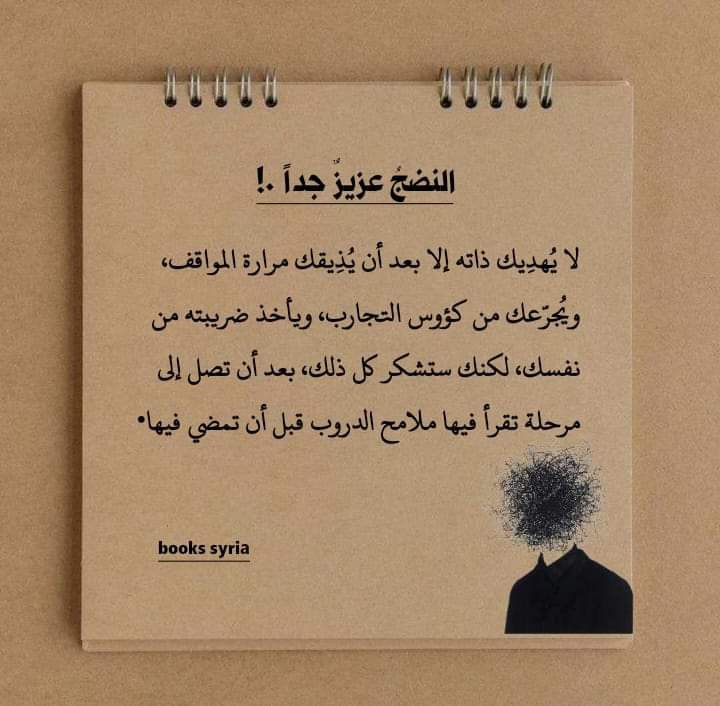 النضجُ عزيزٌ جداً .!
لا يُهدِيك ذاته إلا بعد أن يُذِيقك مرارة المواقف،
ويُجرّعك من كؤوس التجارب، ويأخذ ضريبته من
نفسك، لكنك ستشكر كل ذلك، بعد أن تصل إلى
مرحلة تقرأ فيها ملامح الدروب قبل أن تمضي فيها•
books syria